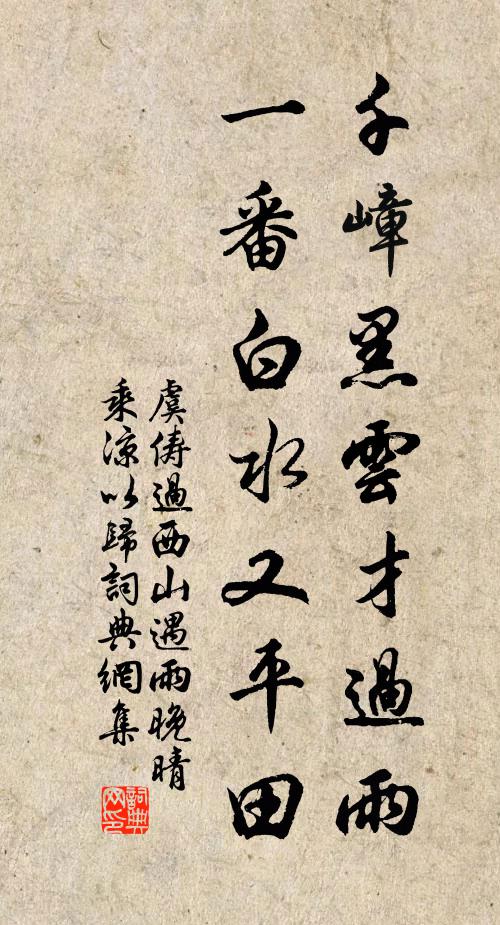 千嶂黑雲才過雨
一番白水又平田
虞儔過西山遇雨晚晴
乘涼以歸詞典網集
詞典网印